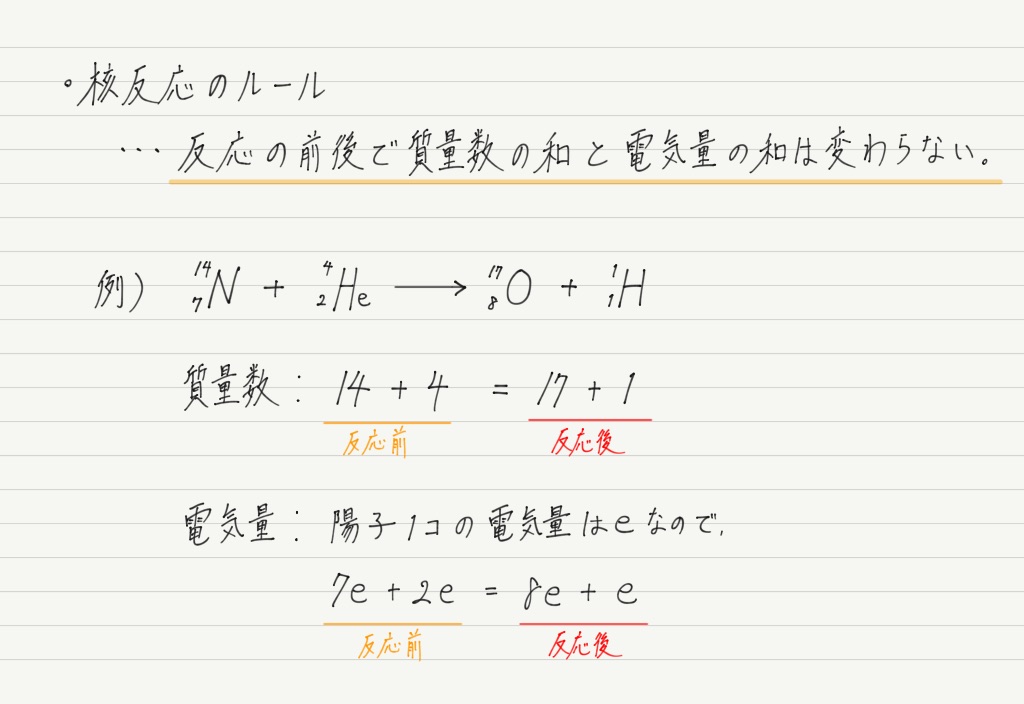 ・核反応のルール
… 反応の前後で質量数の和と電気量の和は変わらない。
例) ¹⁴₇N + ⁴₂He ⟶ ¹⁷₈O + ¹₁H
質量数: 14 + 4 = 17 + 1
反応前 反応後
電気量: 陽子1コの電気量はeなので,
7e + 2e = 8e + e
反応前 反応後